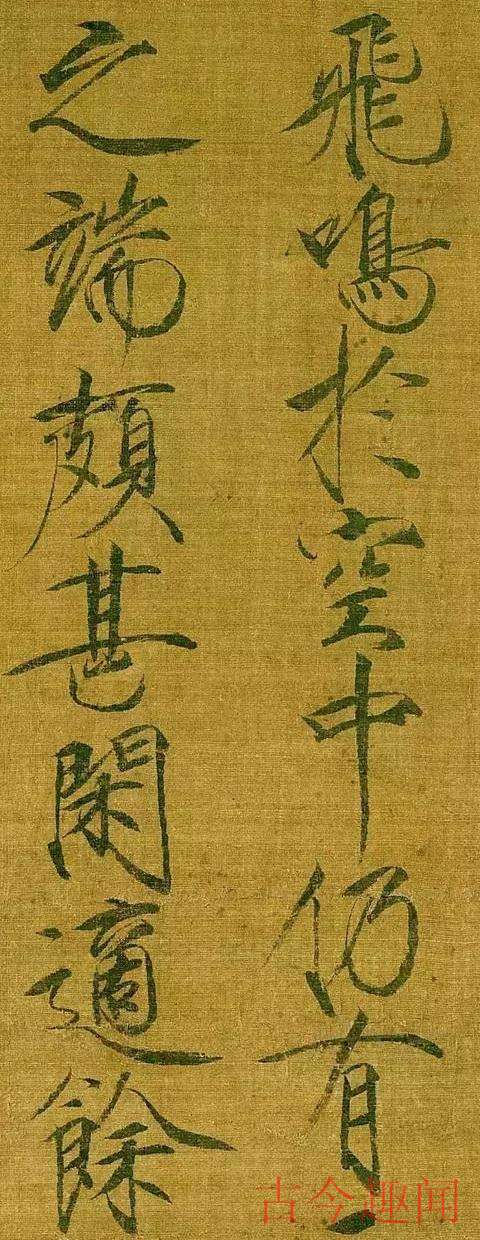 飛鳴於空中仍有
之端頗甚閑適餘
古今趣闻